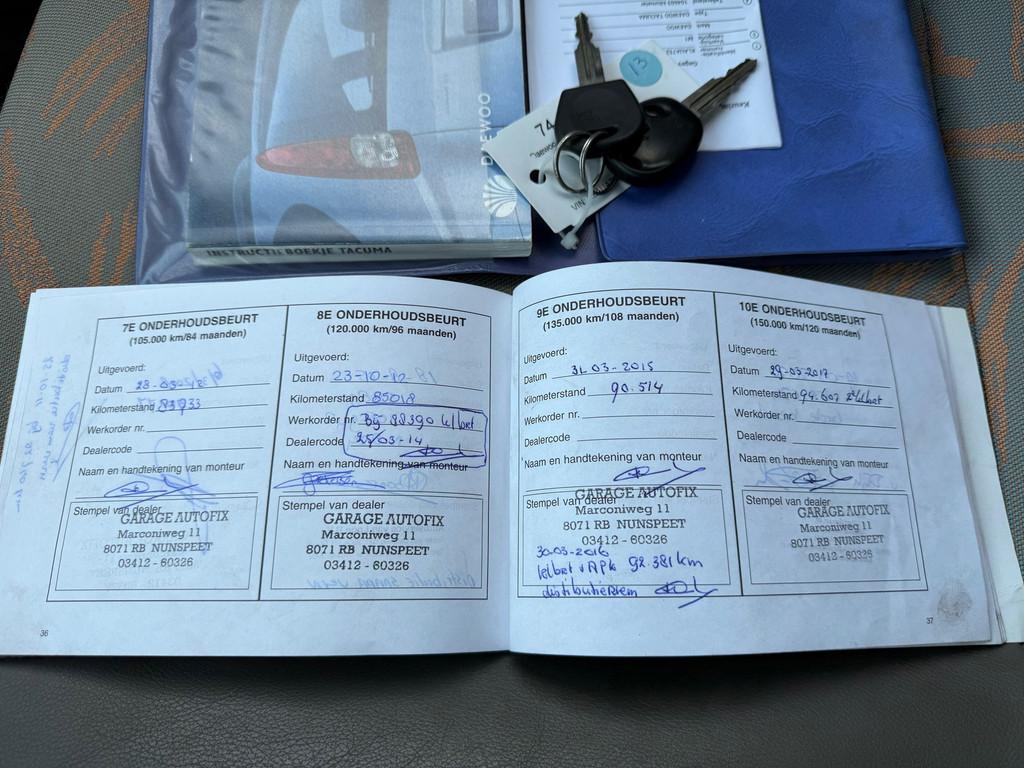 DAEWOO
INSTRUCTIEBOEKJE TACUMA
13
74
VIN
Keuring
DAEWOO
DAEWOO TACUMA
7E ONDERHOUDSBEURT
(105.000 km/84 maanden)
Uitgevoerd:
Datum
Kilometerstand
Werkorder nr.
Dealercode
Naam en handtekening van monteur
Stempel van dealer
GARAGE AUTOFIX
Marconiweg 11
8071 RB NUNSPEET
03412 - 60326
36
8E ONDERHOUDSBEURT
(120.000 km/96 maanden)
Uitgevoerd:
Datum 23-10-
Kilometerstand 85018
Werkorder nr. Bij 88390 kl/bert
Dealercode 25/03-14
Naam en handtekening van monteur
Stempel van dealer
GARAGE AUTOFIX
Marconiweg 11
8071 RB NUNSPEET
03412 - 60326
9E ONDERHOUDSBEURT
(135.000 km/108 maanden)
Uitgevoerd:
Datum 31-03-2015
Kilometerstand 90.514
Werkorder nr.
Dealercode
Naam en handtekening van monteur
Stempel van dealer
GARAGE AUTOFIX
Marconiweg 11
8071 RB NUNSPEET
03412 - 60326
30-03-2016
kl/bert + APk 92.381 km
distributieriem
10E ONDERHOUDSBEURT
(150.000 km/120 maanden)
Uitgevoerd:
Datum 29-03-2017
Kilometerstand 94.607
Werkorder nr.
Dealercode
Naam en handtekening van monteur
Stempel van dealer
GARAGE AUTOFIX
Marconiweg 11
8071 RB NUNSPEET
03412 - 60326
37